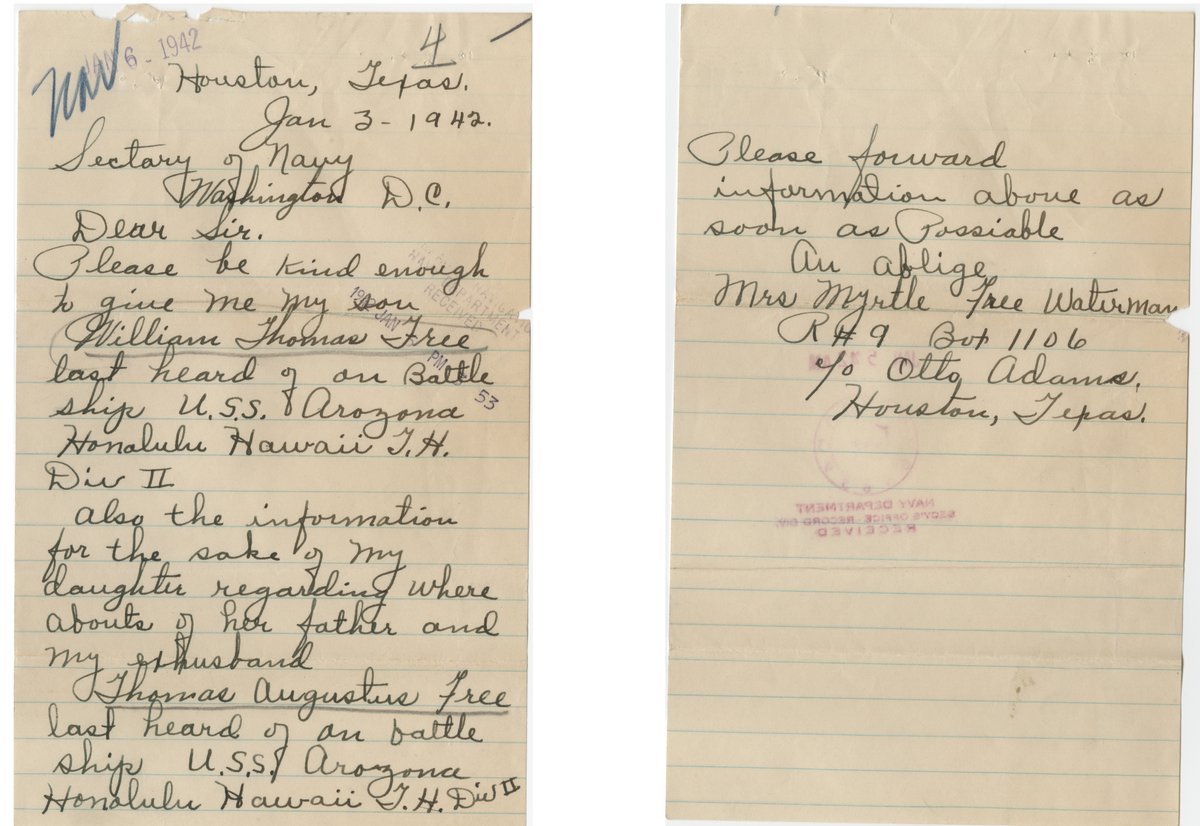 JAN 6 - 1942
4
Nav
Houston, Texas.
Jan 3 - 1942.
Sectary of Navy
Washington D.C.
Dear Sir.
Please be kind enough
to give me my son
William Thomas Free
last heard of on Battle
ship U.S.S. Arozona
Honolulu Hawaii T.H.
Div II
also the information
for the sake of my
daughter regarding where
abouts of her father and
my exhusband
Thomas Augustus Free
last heard of on battle
ship U.S.S. Arozona
Honolulu Hawaii T.H. Div II
DEPARTMENT
RECEIVED
1942 JAN
PM
53
Please forward
information above as
soon as Possiable
An ablige
Mrs Myrtle Free Waterman
R#9 Box 1106
c/o Otto Adams,
Houston, Texas.
NAVY DEPARTMENT
SECY'S OFFICE - RECORD DIV.
RECEIVED